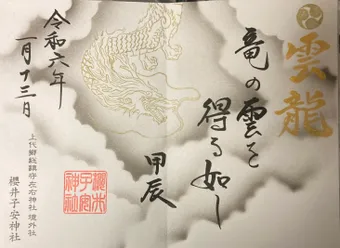 雲龍
竜の雲を
得る如し
甲辰
上代郷総鎮守 左右神社 境外社
櫻井子安神社
櫻井
子安
神社
令和六年
一月十三日